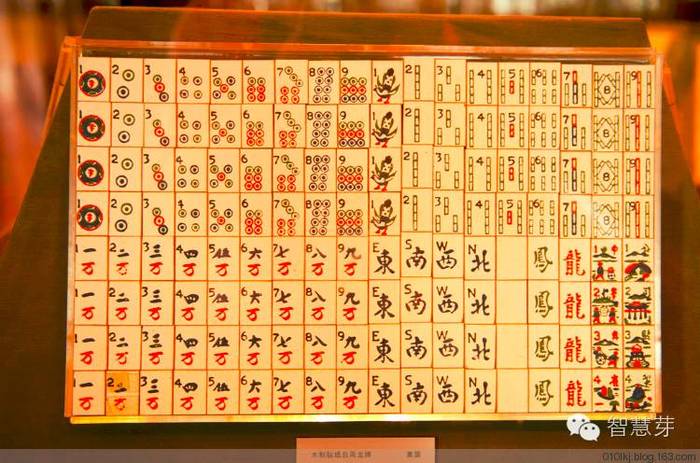 1 2 3 4 5 6 7 8 9 1 2 3 4 5 6 7 8 9
1 2 3 4 5 6 7 8 9 1 2 3 4 5 6 7 8 9
1 2 3 4 5 6 7 8 9 1 2 3 4 5 6 7 8 9
1 2 3 4 5 6 7 8 9 1 2 3 4 5 6 7 8 9
1一万 2二万 3三万 4四万 5伍万 6六万 7七万 8八万 9九万 E東 S南 W西 N北 鳳 龍 1 1
1一万 2二万 3三万 4四万 5伍万 6六万 7七万 8八万 9九万 E東 S南 W西 N北 鳳 龍 2 2
1一万 2二万 3三万 4四万 5伍万 6六万 7七万 8八万 9九万 E東 S南 W西 N北 鳳 龍 3 3
1一万 2二万 3三万 4四万 5伍万 6六万 7七万 8八万 9九万 E東 S南 W西 N北 鳳 龍 4 4
智慧芽
010lkj.blog.163.com